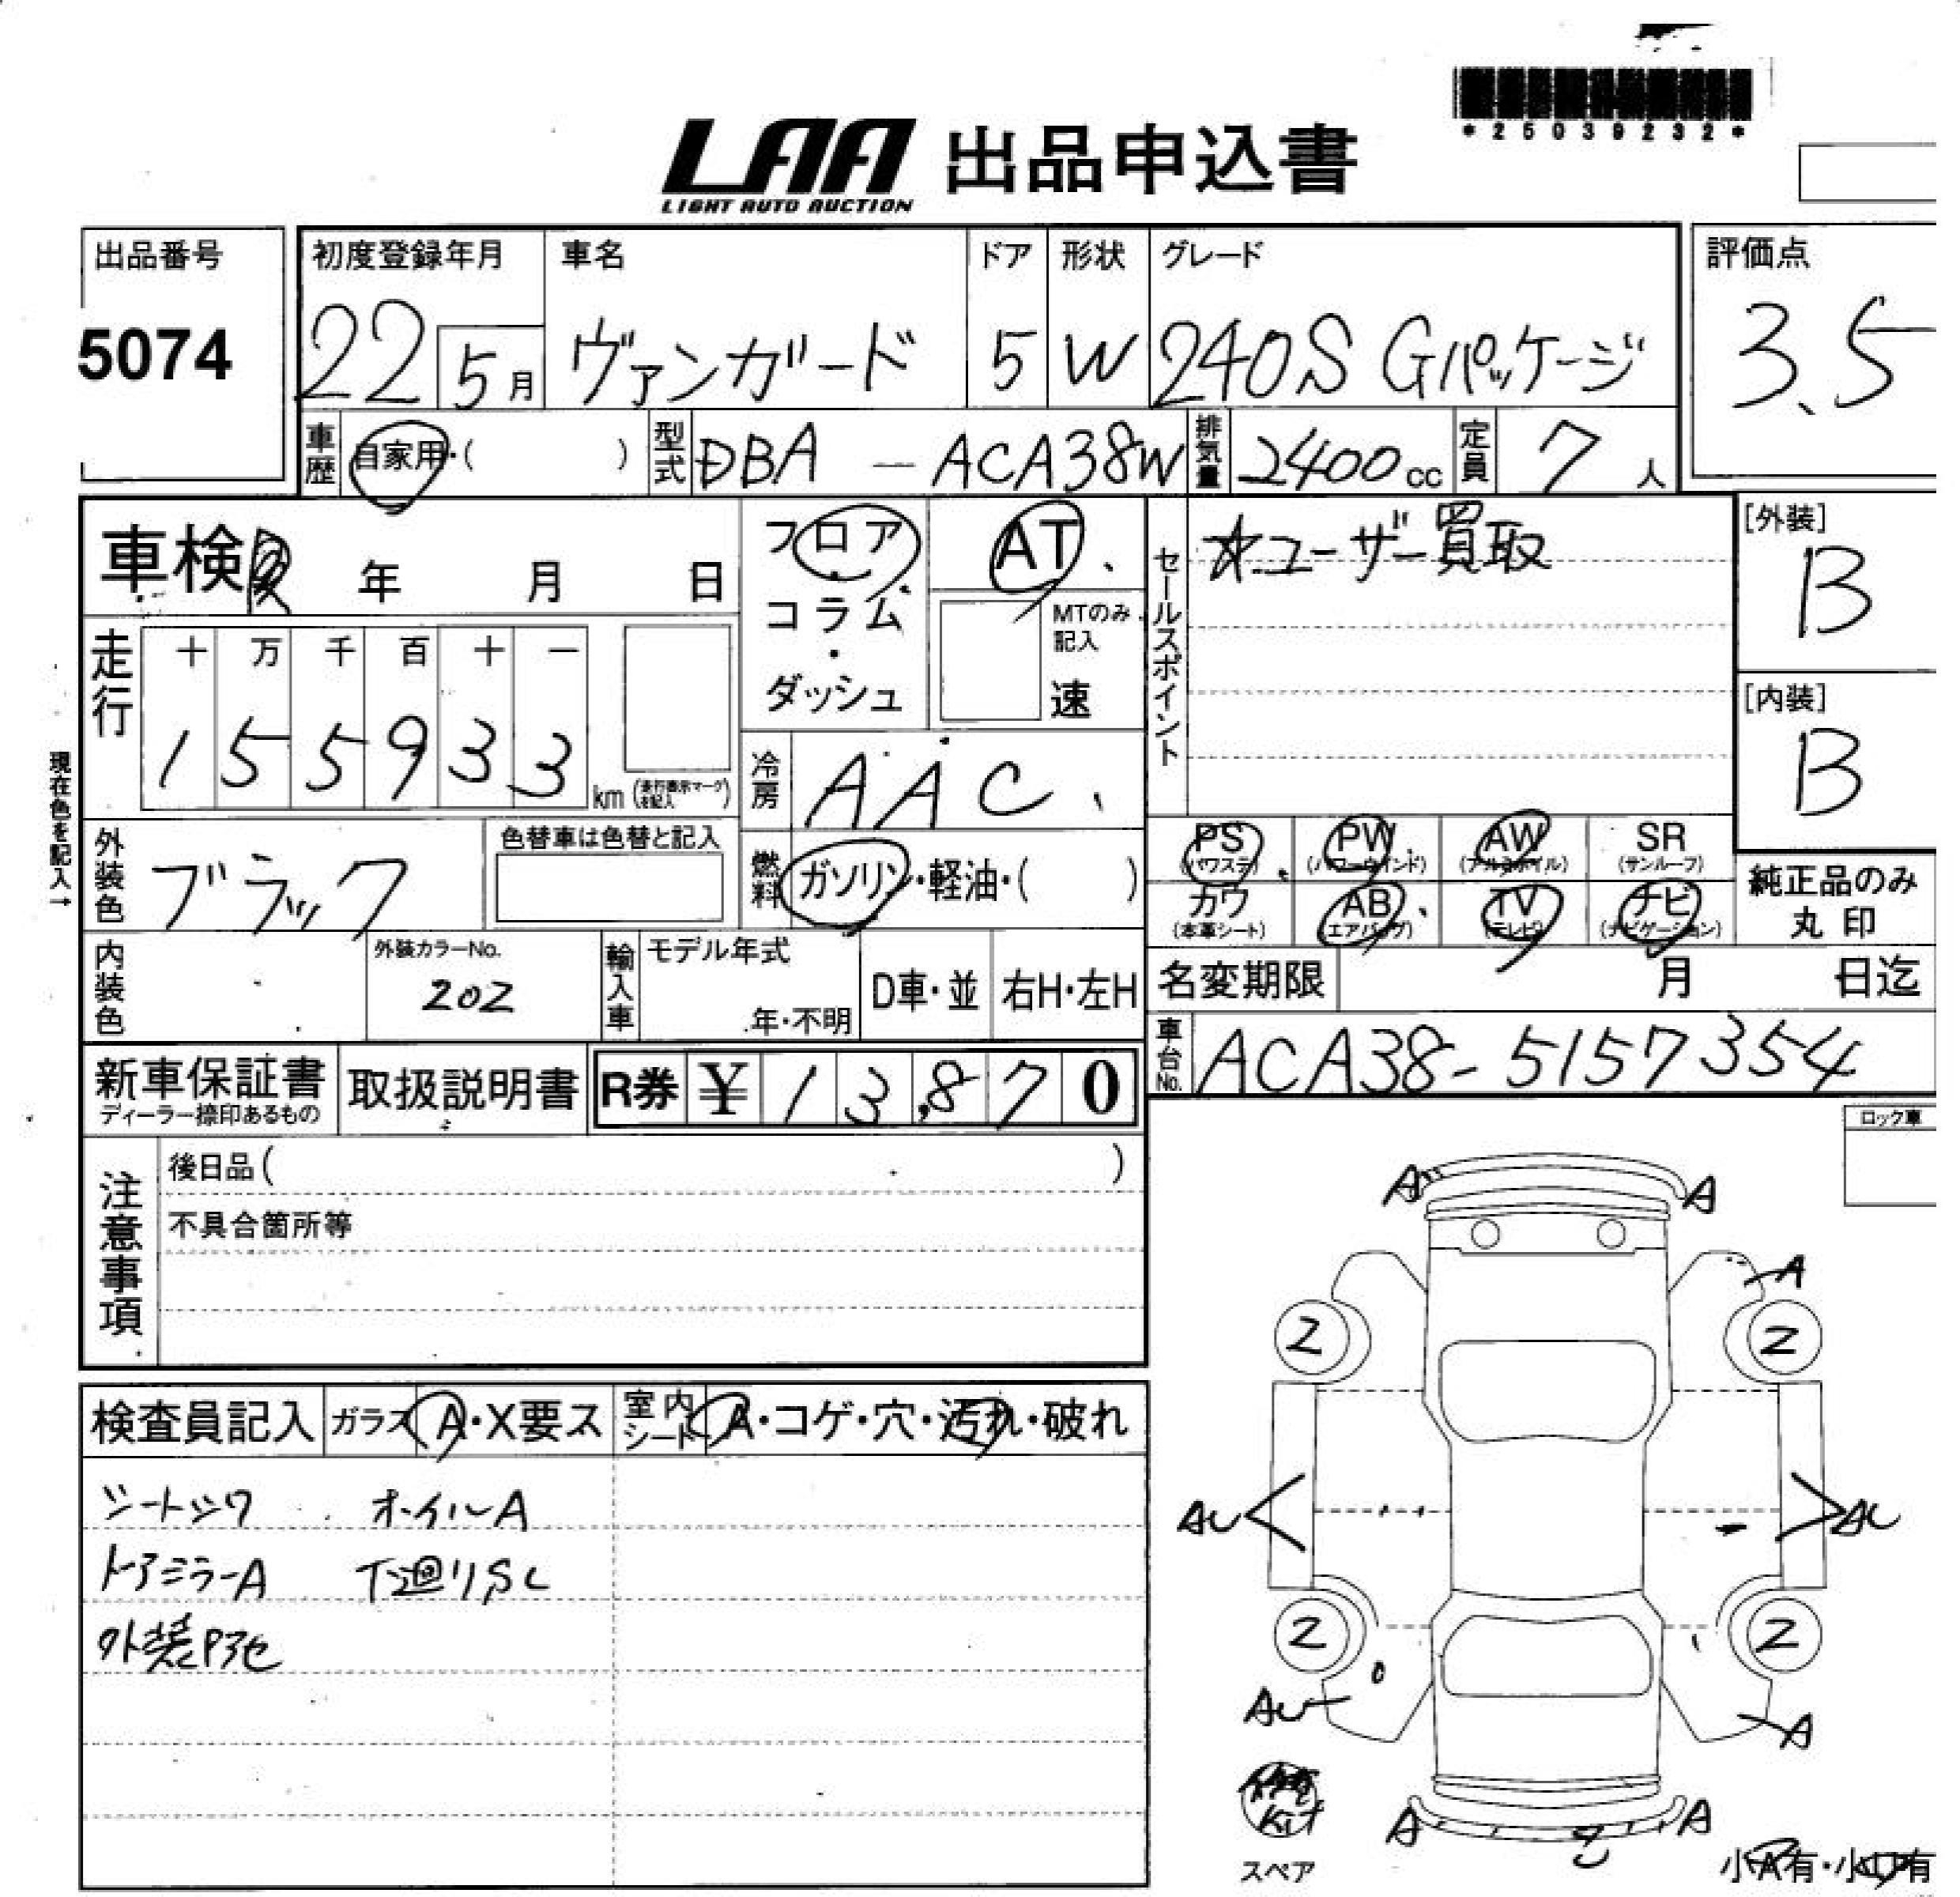 *25039232*
LAA 出品申込書
LIGHT AUTO AUCTION
出品番号
5074
初度登録年月
22 5月
車名
ヴァンガード
ドア
5
形状
W
グレード
240S Gパッケージ
評価点
3.5
車歴
自家用・( )
型式
DBA - ACA38W
排気量
2400cc
定員
7人
車検 年 月 日
走行
十 万 千 百 十 一
1 5 5 9 3 3
km (走行表示マークを記入)
現在色を記入→
フロア
・
コラム
・
ダッシュ
AT
MTのみ記入
速
冷房
AAC
セールスポイント
☆ユーザー買取
[外装]
B
[内装]
B
外装色
ブラック
色替車は色替と記入
燃料
ガソリン・軽油・( )
PS
(パワステ)
PW
(パワーウインド)
AW
(アルミホイル)
SR
(サンルーフ)
カワ
(本革シート)
AB
(エアバッグ)
TV
(テレビ)
ナビ
(ナビゲーション)
純正品のみ
丸印
内装色
外装カラーNo.
202
輸入車
モデル年式
年・不明
D車・並
右H・左H
名変期限 月 日迄
車台No.
ACA38-5157354
新車保証書
ディーラー捺印あるもの
取扱説明書
R券 ¥ 13,870
注意事項
後日品( )
不具合箇所等
ロック車
検査員記入
ガラス A・X要ス
室内シート A・コゲ・穴・汚れ・破れ
シートシワ オイルA
ドアミラーA 下廻り,SL
外装P3セ
A A
A
2 2
AU AU
2 2
AU A
Kit
スペア
A A
小A有・小U有